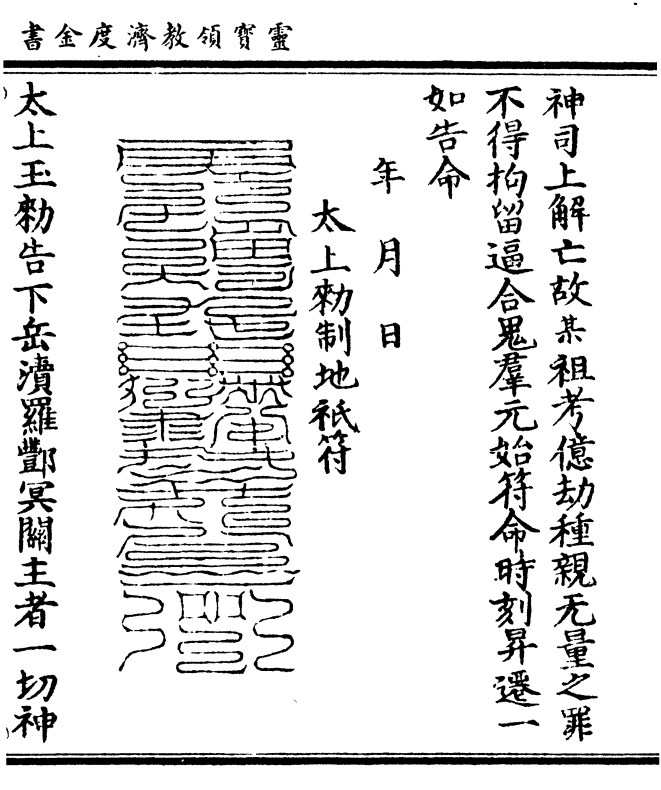 靈寶領教濟度金書
神司上解亡故某祖考億劫種親无量之罪
不得拘留逼合鬼羣元始符命時刻昇遷一
如告命
年 月 日
太上勑制地祇符
太上玉勑告下岳瀆羅酆冥關主者一切神